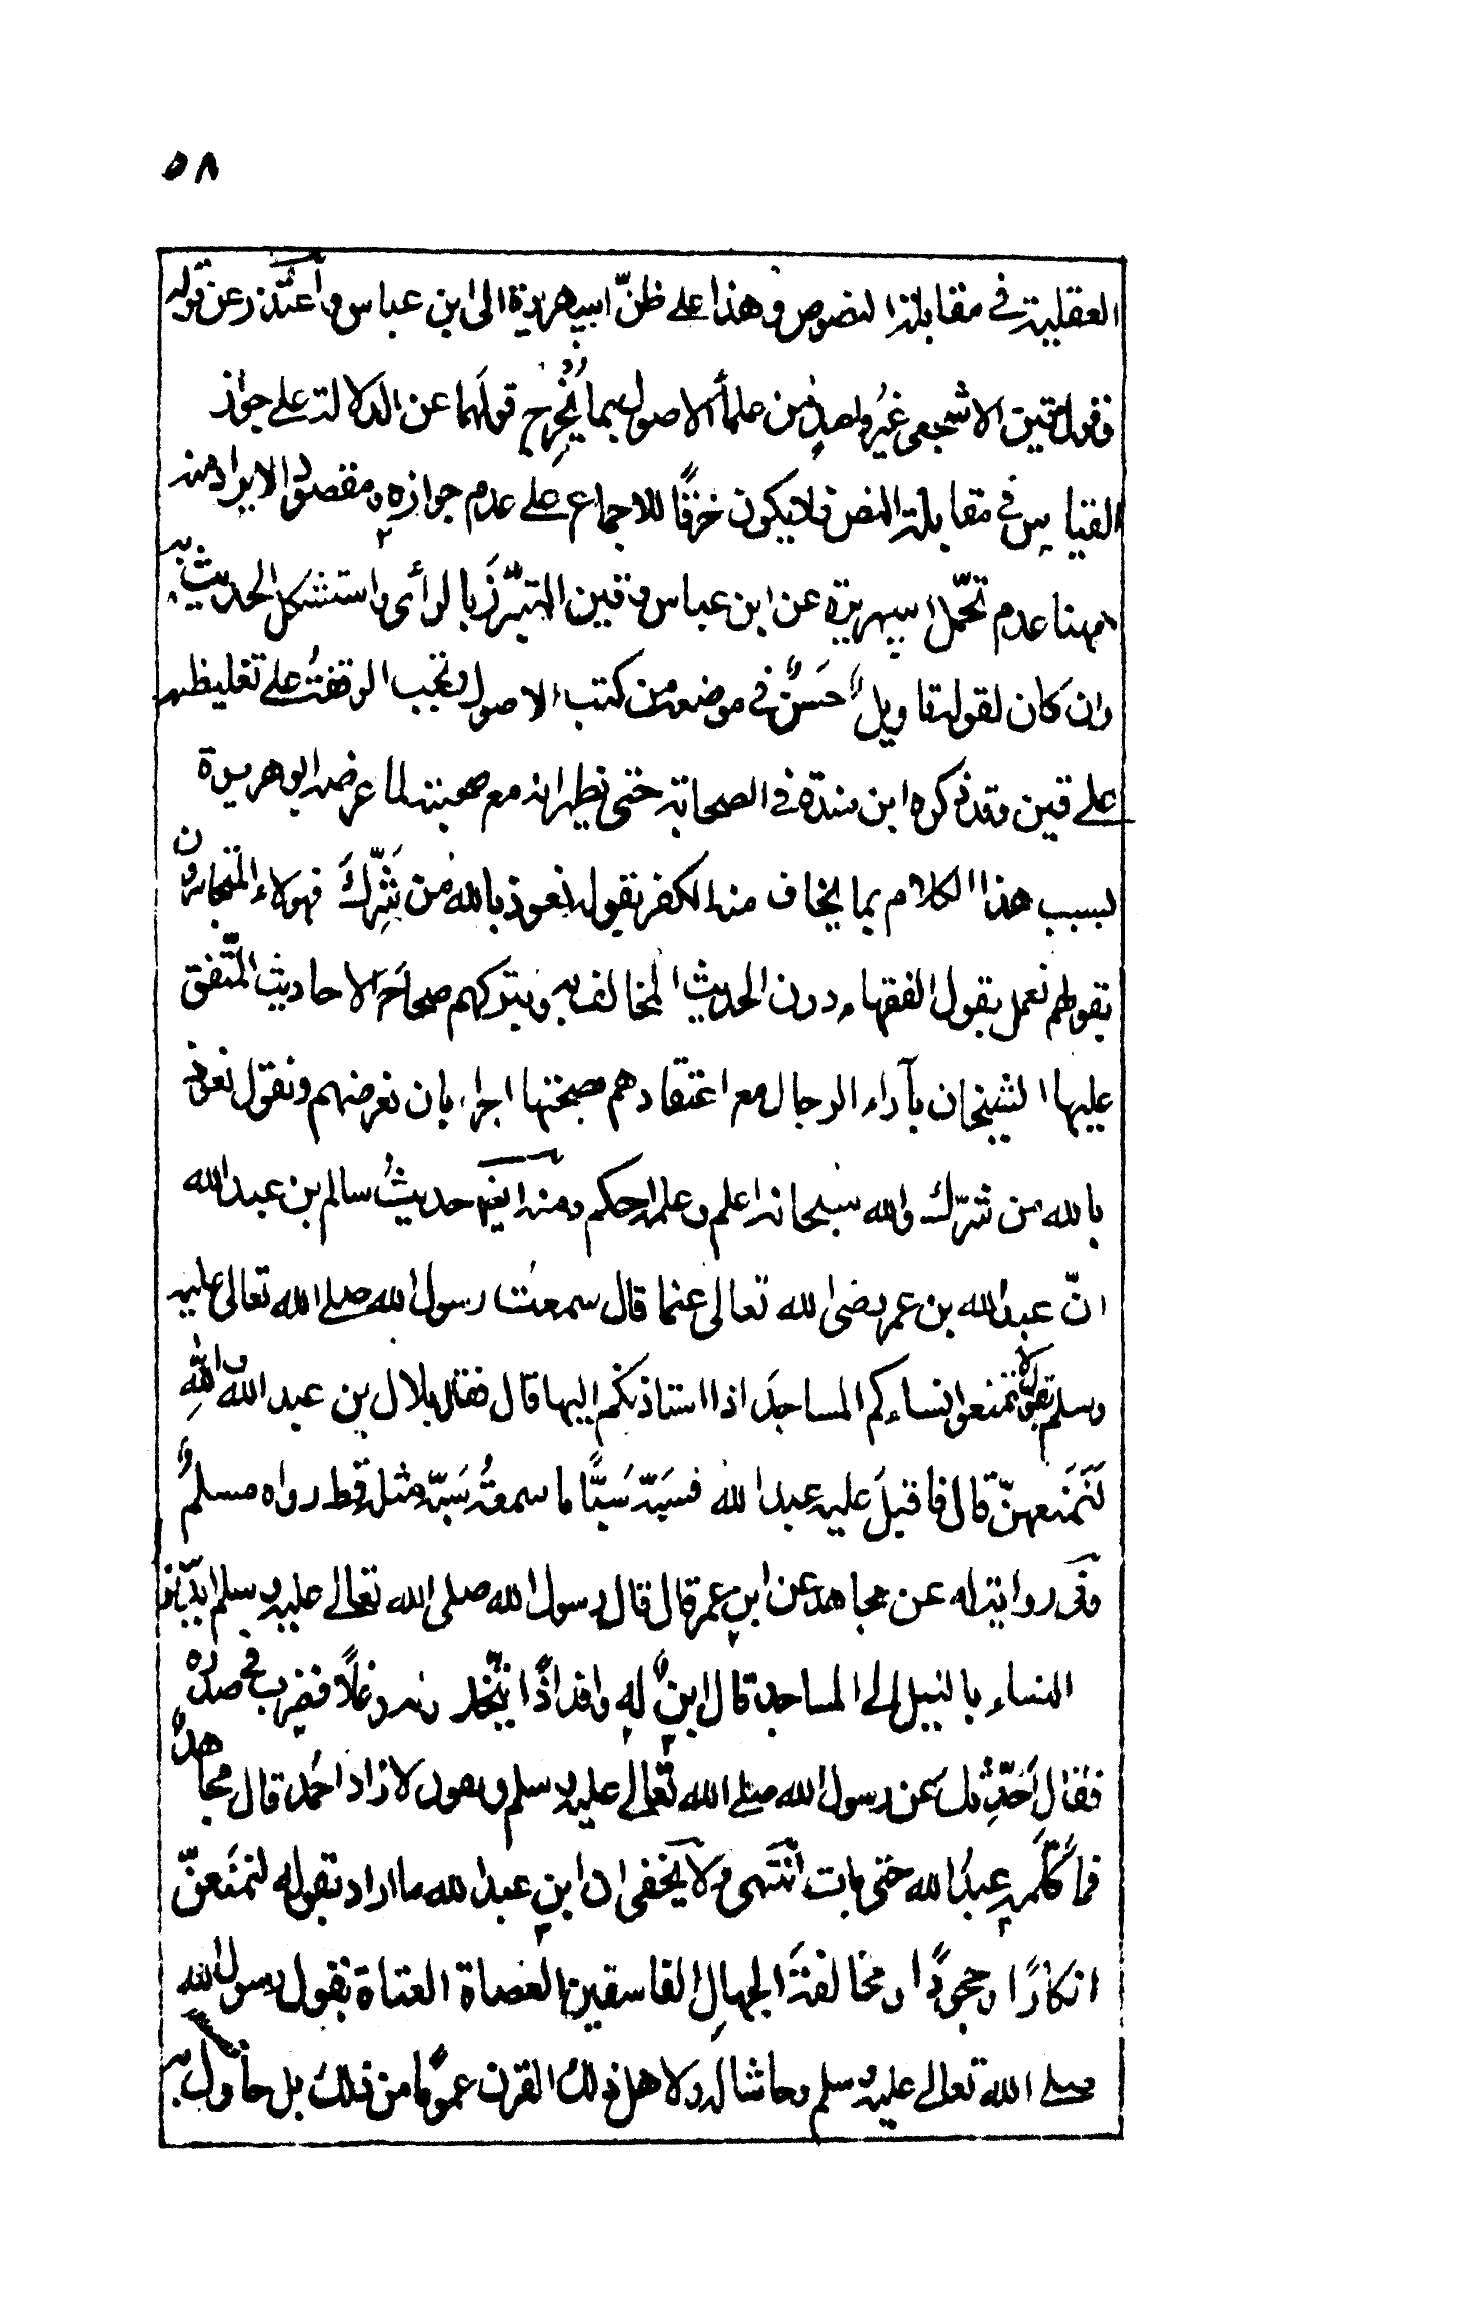 ٥٨
العقلية في مقابلة النصوص وهذا على ظنّ ابيهريرة الى ابن عباس و أعتذر عن قوله
وقول قين الاشجعي غيرُ واحدٍ من علماء الاصول بما يُخرِج قولَهما عن الدلالة على جواز
القياس في مقابلة النص فلا يكون خرقًا للاجماع على عدم جوازه ومقصود الايراد منه
ههنا عدم تحمّل ابيهريرة عن ابن عباس و قين المتبرّز بالرأى و استشكل الحديث به
وان كان لقوله تاويلٌ حَسَنٌ في موضعه من كتب الاصول وتجب الوقفةُ على تغليظه
على قين وقد ذكره ابن مندة في الصحابة حتى نظهر انه مع صحبته لما عرضه ابو هريرة
بسبب هذا الكلام بما يخاف منه الكفر بقوله نعوذ بالله من شرّك فهولاء المتجاسرون
بقولهم نعمل بقول الفقهاء دون الحديث المخالف به وبتركهم صحاحَ الاحاديث المتّفق
عليها الشيخان بآراء الرجال مع اعتقادهم صحتها اجراء بان نعرضهم ونقول نعوذ
بالله من شرّك والله سبحانه اعلم وعلمه احكم ومنه ايضا حديثُ سالم بن عبد الله
انّ عبد الله بن عمر رضى الله تعالى عنهما قال سمعت رسول الله صلى الله تعالى عليه
وسلم يقول لا تمنعوا نساءكم المساجدَ اذا استاذنكم اليها قال فقال بلال بن عبد الله و اللهِ
لَنَمنَعهنّ قال فاقبلَ عليه عبد الله فسَبّه سَبًّا ما سمعتُه سَبّه مثله قط رواه مسلمٌ
وفى رواية له عن مجاهد عن ابن عمر قال قال رسول الله صلى الله تعالى عليه وسلم ايذنوا
النساء بالليل الى المساجد قال ابنٌ له واقد اذًا يتّخذنه دغلًا فضرب في صدره
فقال أُحدّثك عن رسول الله صلى الله تعالى عليه وسلم وتقول لا زاد احمد قال مجاهدٌ
فما كلّمه عبدُ الله حتى مات انتهى ولا يخفى ان ابن عبد الله ما اراد بقوله لنمنَعنّ
انكارًا وجحودًا ومخالفةَ الجهالِ الفاسقين العصاة العتاة بقول رسول الله
صلى الله تعالى عليه وسلم وحاشا له ولا هل ذلك القرن عمومًا من ذلك بل حاول به